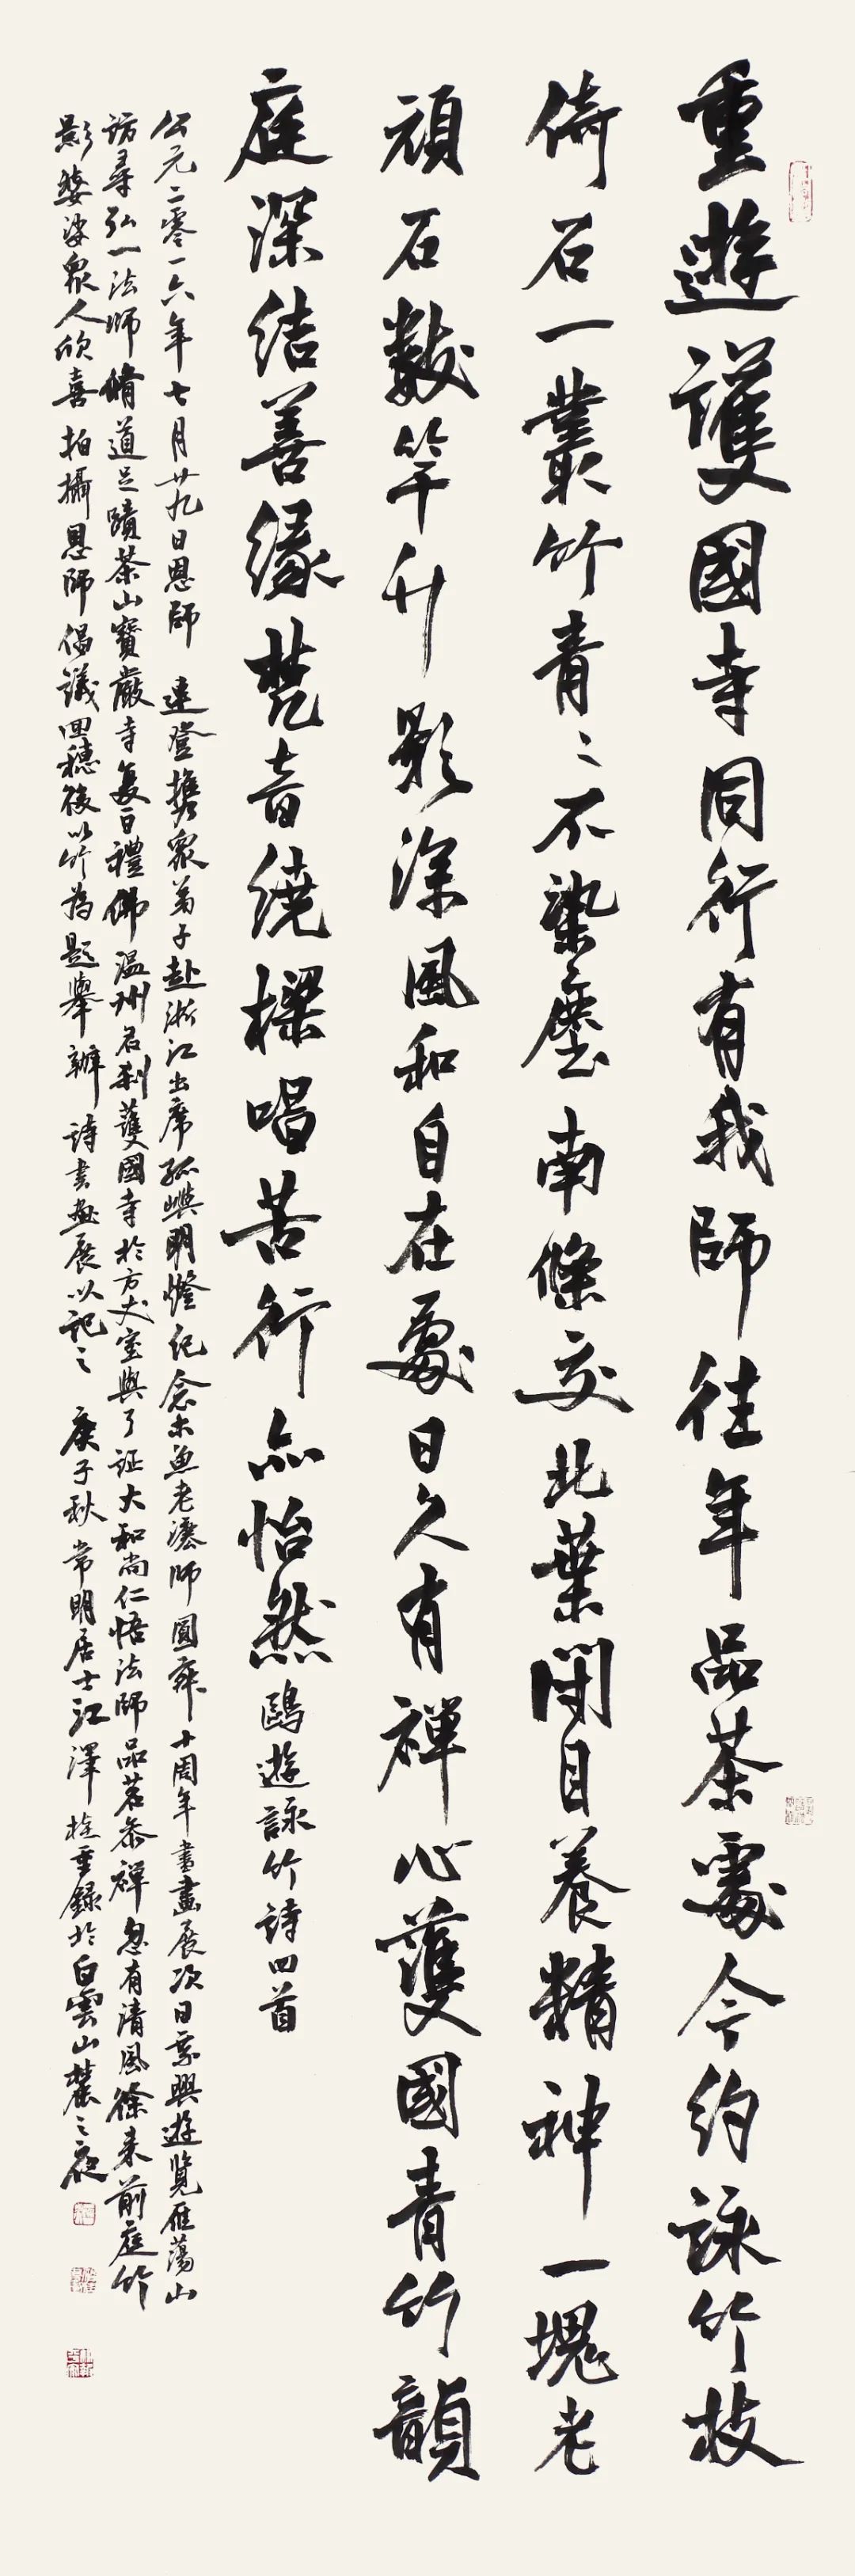 重遊護國寺同行有我師往年品茶處今約詠竹枝
倚石一叢竹青〻不染塵南條交北葉閉目養精神一塊老
頑石數竿竹影深風和自在處日久有禪心護國青竹韻
庭深結善緣梵音繞樑唱苦行亦怡然鷗遊詠竹詩四首
公元二零一六年七月廿九日恩師連登攜眾弟子赴浙江出席孤嶼明燈紀念木魚老法師圓寂十周年書畫展次日乘興遊覽雁蕩山
訪尋弘一法師脩道足蹟茶山寶嚴寺复日禮佛溫州名刹護國寺於方丈室與了证大和尚仁悟法師品茗參禪忽有清風徐来前庭竹
影婆娑眾人欣喜拍攝恩師倡議回穗後以竹為題舉辦詩書畫展以記之庚子秋常明居士江澤重錄於白雲山麓之夜